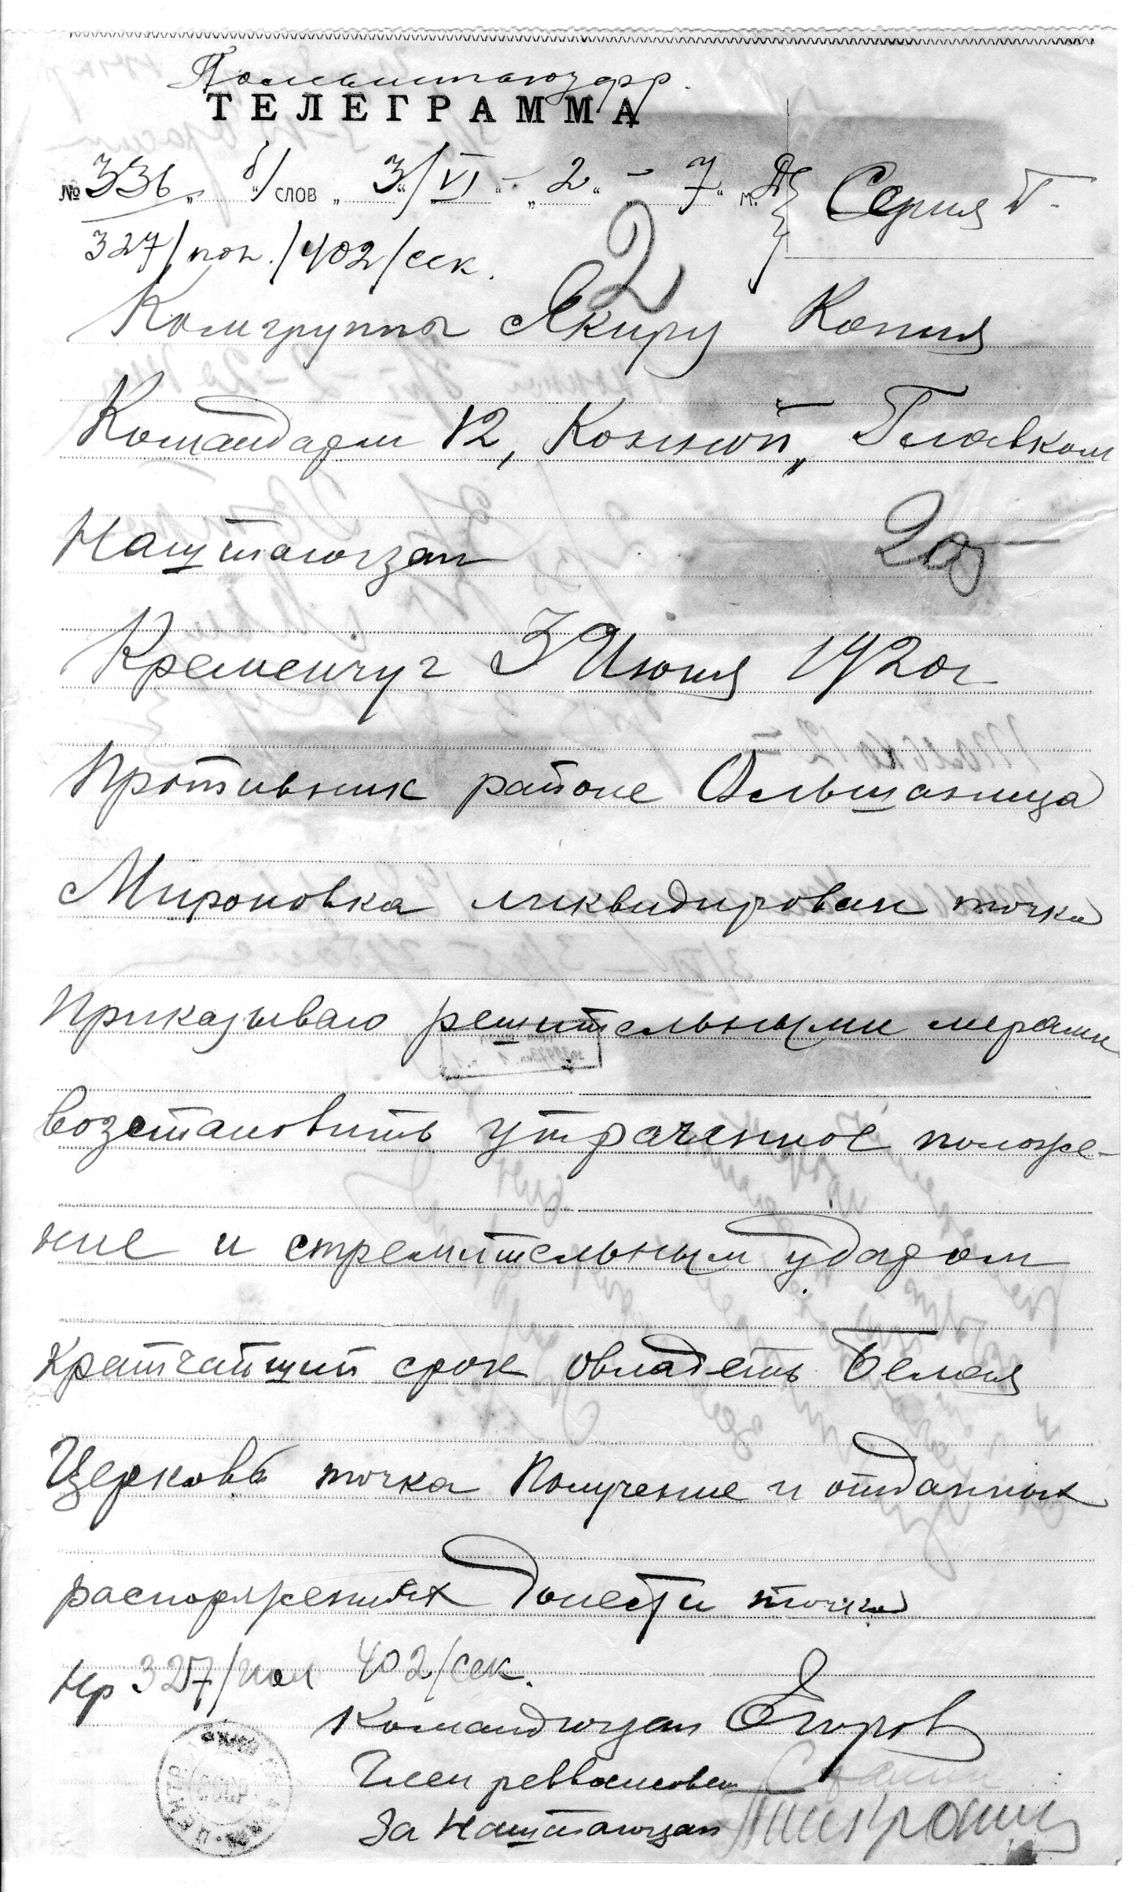 Полештаюзфр.
ТЕЛЕГРАММА
№ 336 б/слов 3/VI - 2 - 7 м. Серия Г.
327/пол./402/сек.
2
Комгруппы Якиру Копия
Командарм 12, Конной, Главком
Наштаюгзап
Кременчуг 3 Июня 1920г
Противник районе Ольшаница
Мироновка ликвидирован точка
Приказываю решительными мерами
возстановить утраченное положе-
ние и стремительным ударом
кратчайший срок овладеть Белая
Церковь точка Получение и отданных
распоряжениях донести точка
Нр 327/пол 402/сек.
Командюгзап Егоров
Член реввоенсовета Сталин
За Наштаюгзап